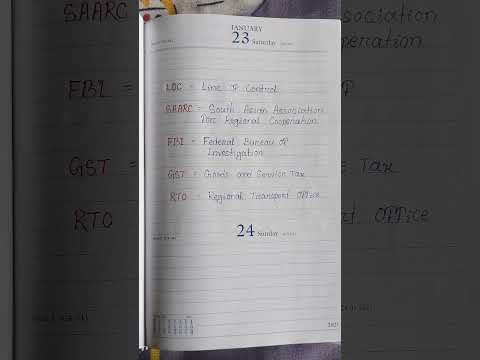 JANUARY
23 Saturday
LOC = Line of Control
SAARC = South Asian Association
For Regional Cooperation
FBI = Federal Bureau of
Investigation
GST = Goods and Service Tax
RTO = Regional Transport Office
24 Sunday
2021
SAARC
Association
operation
FBI
GST
Tax
RTO
Office